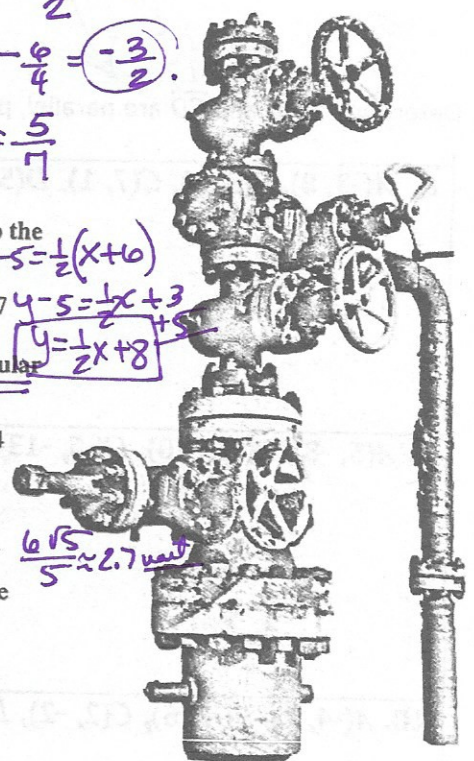 2
- 6/4 = -3/2.
= 5/7
o the
-5=1/2(x+6)
7 y-5=1/2x+3
+5
y=1/2x+8
ular
4
6√5/5≈2.7 unit
e